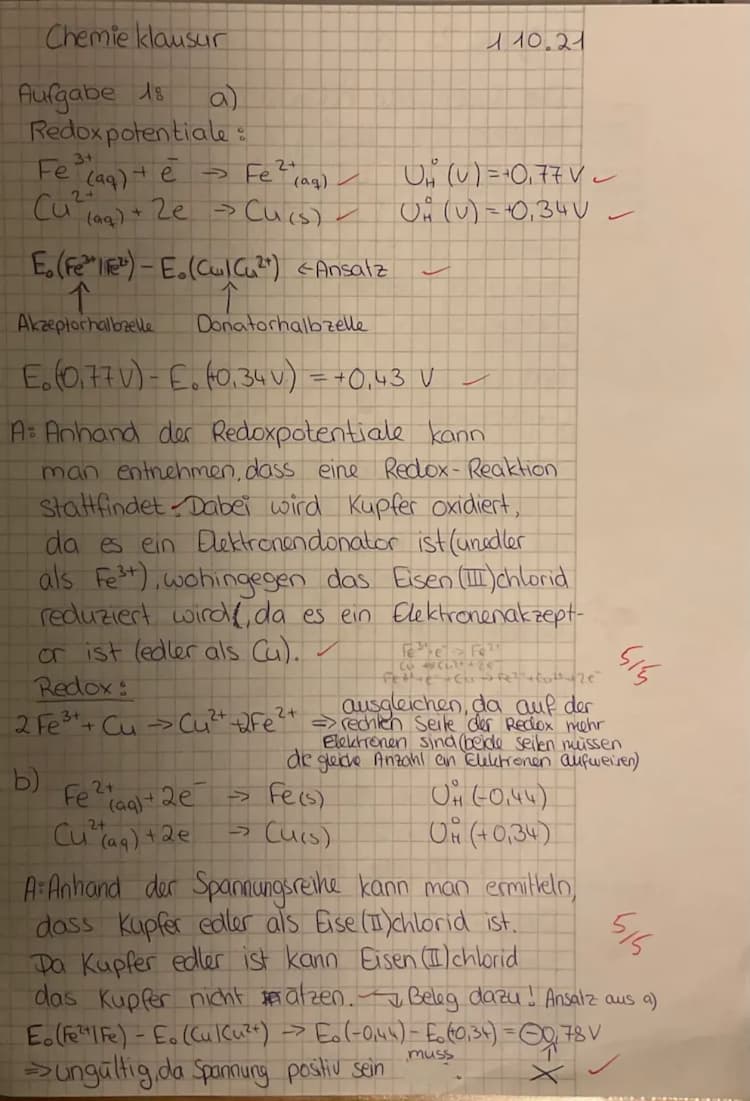 Chemieklausur 1 10.21
Aufgabe 1: a)
Redoxpotentiale:
Fe³⁺(aq) + e⁻ → Fe²⁺(aq) ✓ U°H (V) = +0,77 V ✓
Cu²⁺(aq) + 2e → Cu(s) ✓ U°H (V) = +0,34 V ✓
E₀(Fe³⁺|Fe²⁺) – E₀(Cu|Cu²⁺) ← Ansatz ✓
↑ ↑
Akzeptorhalbzelle Donatorhalbzelle
E₀(0,77V) – E₀(+0,34V) = +0,43 V ✓
A: Anhand der Redoxpotentiale kann
man entnehmen, dass eine Redox-Reaktion
stattfindet. Dabei wird Kupfer oxidiert,
da es ein Elektronendonator ist (unedler
als Fe³⁺), wohingegen das Eisen(III)chlorid
reduziert wird, da es ein Elektronenakzept-
or ist (edler als Cu). ✓
5/5
Redox:
2Fe³⁺ + Cu → Cu²⁺ + 2Fe²⁺ ⇒ ausgleichen, da auf der
rechten Seite der Redox mehr
Elektronen sind (beide seiten müssen
die gleiche Anzahl an Elektronen aufweisen)
b)
Fe²⁺(aq) + 2e⁻ → Fe(s) U°H (-0,44)
Cu²⁺(aq) + 2e → Cu(s) U°H (+0,34)
A: Anhand der Spannungsreihe kann man ermitteln,
dass Kupfer edler als Eise(II)chlorid ist.
5/5
Da Kupfer edler ist kann Eisen(II)chlorid
das Kupfer nicht ätzen. → Beleg dazu! Ansatz aus a)
E₀(Fe²⁺|Fe) – E₀(Cu|Cu²⁺) → E₀(-0,44) – E₀(+0,34) = ⊖0,78 V
⇒ ungültig, da Spannung positiv sein muss. ↑ X ✓